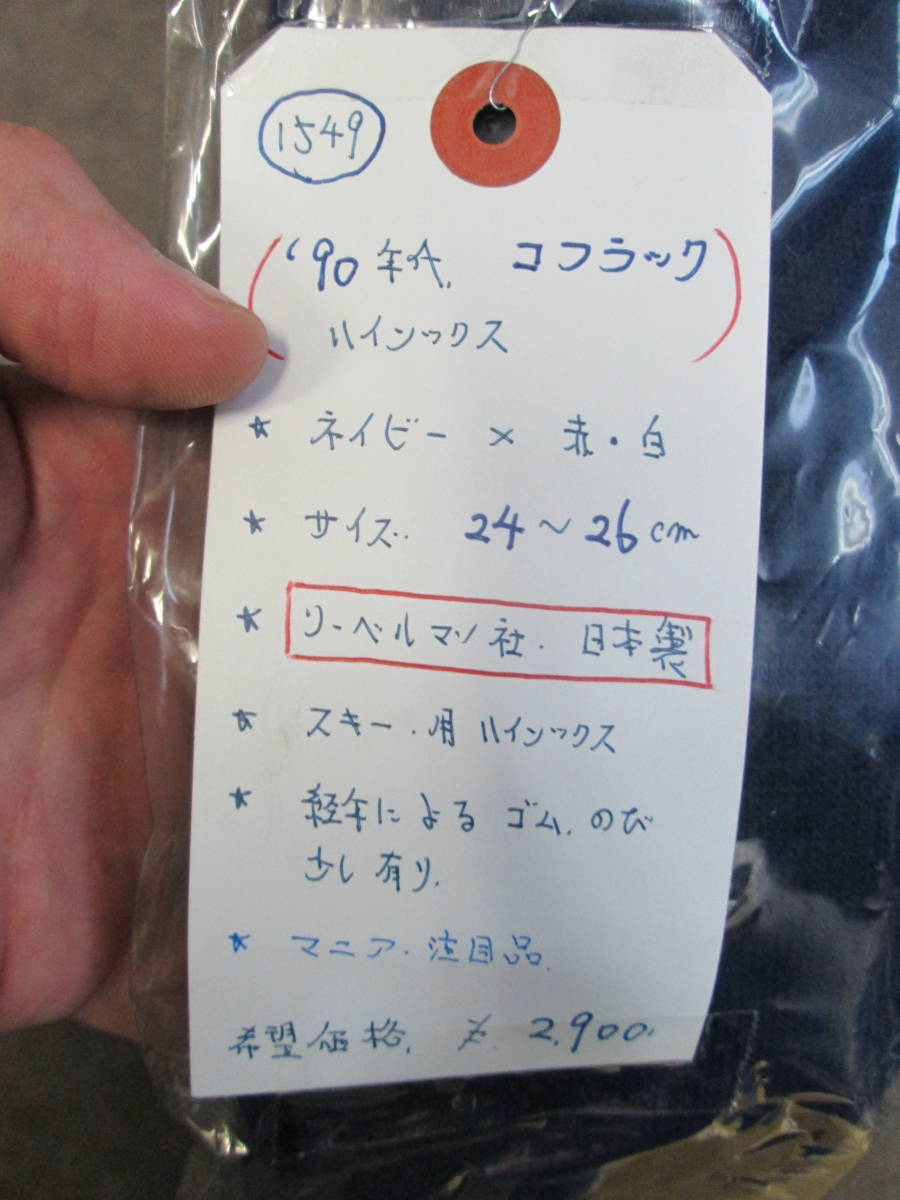 1549
'90年代. コフラック
ハインックス
★ ネイビー × 赤・白
★ サイズ. 24～26cm
★ リーベルマン社. 日本製
★ スキー.用ハインックス
★ 経年によるゴム.のび
少し有り.
★ マニア.注目品.
希望価格. ¥2.900.